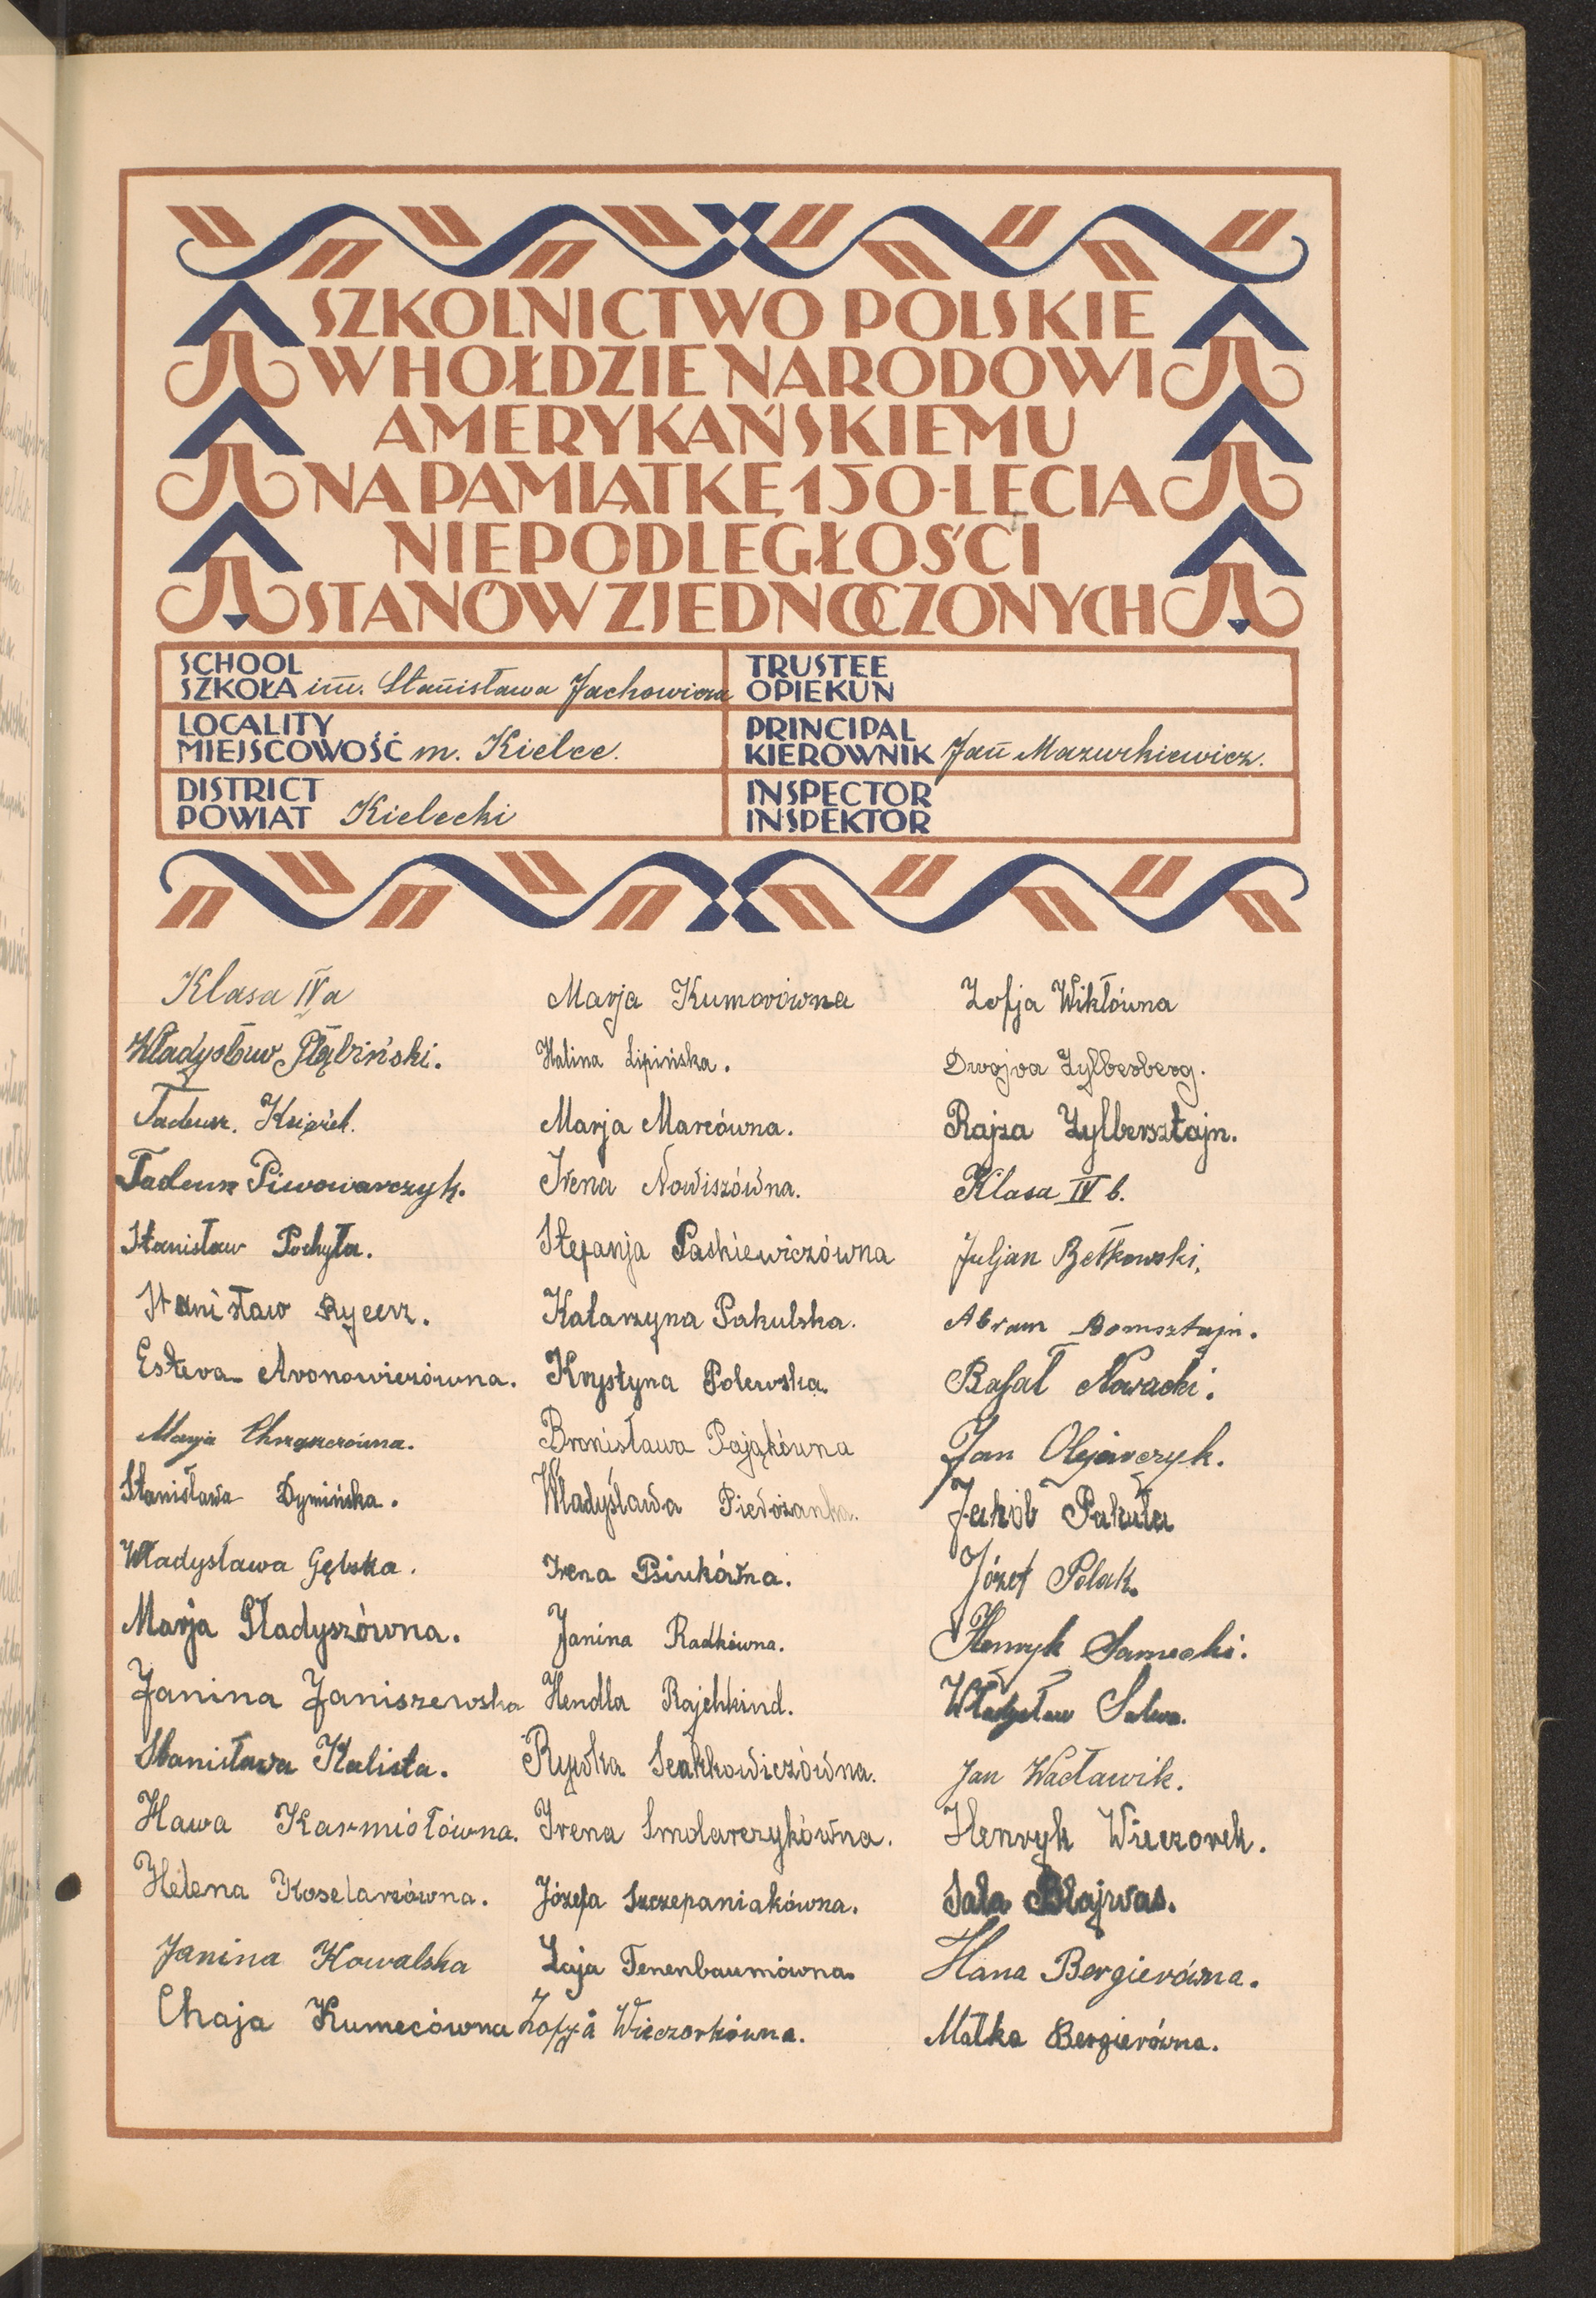 SZKOLNICTWO POLSKIE
W HOŁDZIE NARODOWI
AMERYKAŃSKIEMU
NA PAMIĄTKĘ 150-LECIA
NIEPODLEGŁOŚCI
STANÓW ZJEDNOCZONYCH
SCHOOL
SZKOŁA im. Stanisława Jachowicza
TRUSTEE
OPIEKUN
LOCALITY
MIEJSCOWOŚĆ m. Kielce.
PRINCIPAL
KIEROWNIK Jan Mazurkiewicz.
DISTRICT
POWIAT Kielecki
INSPECTOR
INSPEKTOR
Klasa IV a
Władysław Głąbiński.
Tadeusz. Książek.
Tadeusz Piwowarczyk.
Stanisław Pochyła.
Stanisław Rycerz.
Estera Aronowiczówna.
Marja
Stanisława Dymińska.
Władysława Gębska.
Marja Gładyszówna.
Janina Janiszewska
Stanisława Kalista.
Hawa Karmiołówna.
Helena Koselarzówna.
Janina Kowalska
Chaja Kumecówna
Marja Kumorówna
Halina Lipińska.
Marja Marcówna.
Irena Nowiszówna.
Stefanja Paskiewiczówna
Katarzyna Pakulska.
Krystyna Polewska.
Bronisława Pająkówna
Władysława
Irena Psiukówna.
Janina Radkówna.
Hendla Rajchkind.
Rywka
Irena Smolarczykówna.
Józefa Szczepaniakówna.
Łaja Tenenbaumówna.
Zofja Wieczorkówna.
Zofja Wikłówna
Dwojra Zylberberg.
Rajza Zylbersztajn.
Klasa IV b.
Juljan Bełkowski.
Abram Bomsztajn.
Rafał Nowacki.
Jan Olejarczyk.
Jakób Pakuła
Józef Polak.
Henryk Sarnecki.
Władysław Salwa.
Jan Wacławik.
Henryk Wieczorek.
Sala Blajwas.
Hana Bergierówna.
Małka Bergierówna.